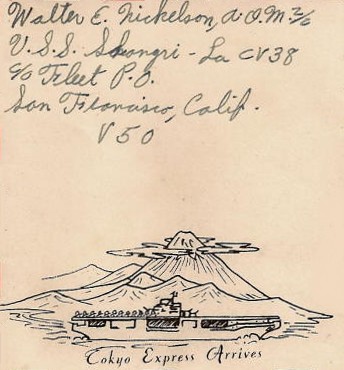 Walter E. Nickelson, A.O.M. 2/c
U.S.S. Shangri-La CV38
c/o Fleet P.O.
San Francisco, Calif.
V50
Tokyo Express Arrives